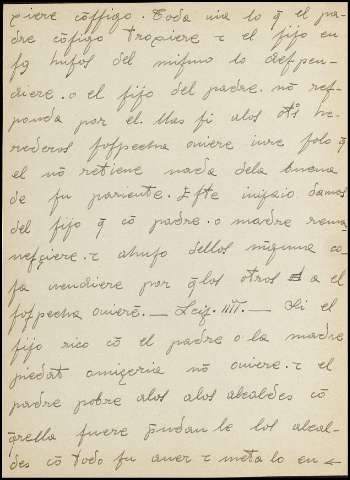 xiere cõssigo. Toda uia lo q̃ el pa-
dre cõsigo troxiere τ el fijo en
sq̃ husos del mismo lo despen-
diere. o el fijo del padre. nõ res-
ponda por el. Mas si alos otõs he-
rederos sospecha ouiere iure solo q̃
el nõ retiene nada dela buena
de su pariente. Este iuizio damos
del fijo q̃ cõ padre. o madre rema-
nesçiere. τ a huso dellos nĩguna co-
sa uendiere por q̃ los otros a el
sospecha ouierẽ. — Leii. IIII. — Si el
fijo rico cõ el padre o la madre
piedat amizeria nõ ouiere. τ el
padre pobre alos alos alcaldes cõ
q̃rella fuere p̃ndan le los alcal-
des cõ todo su auer τ meta lo en